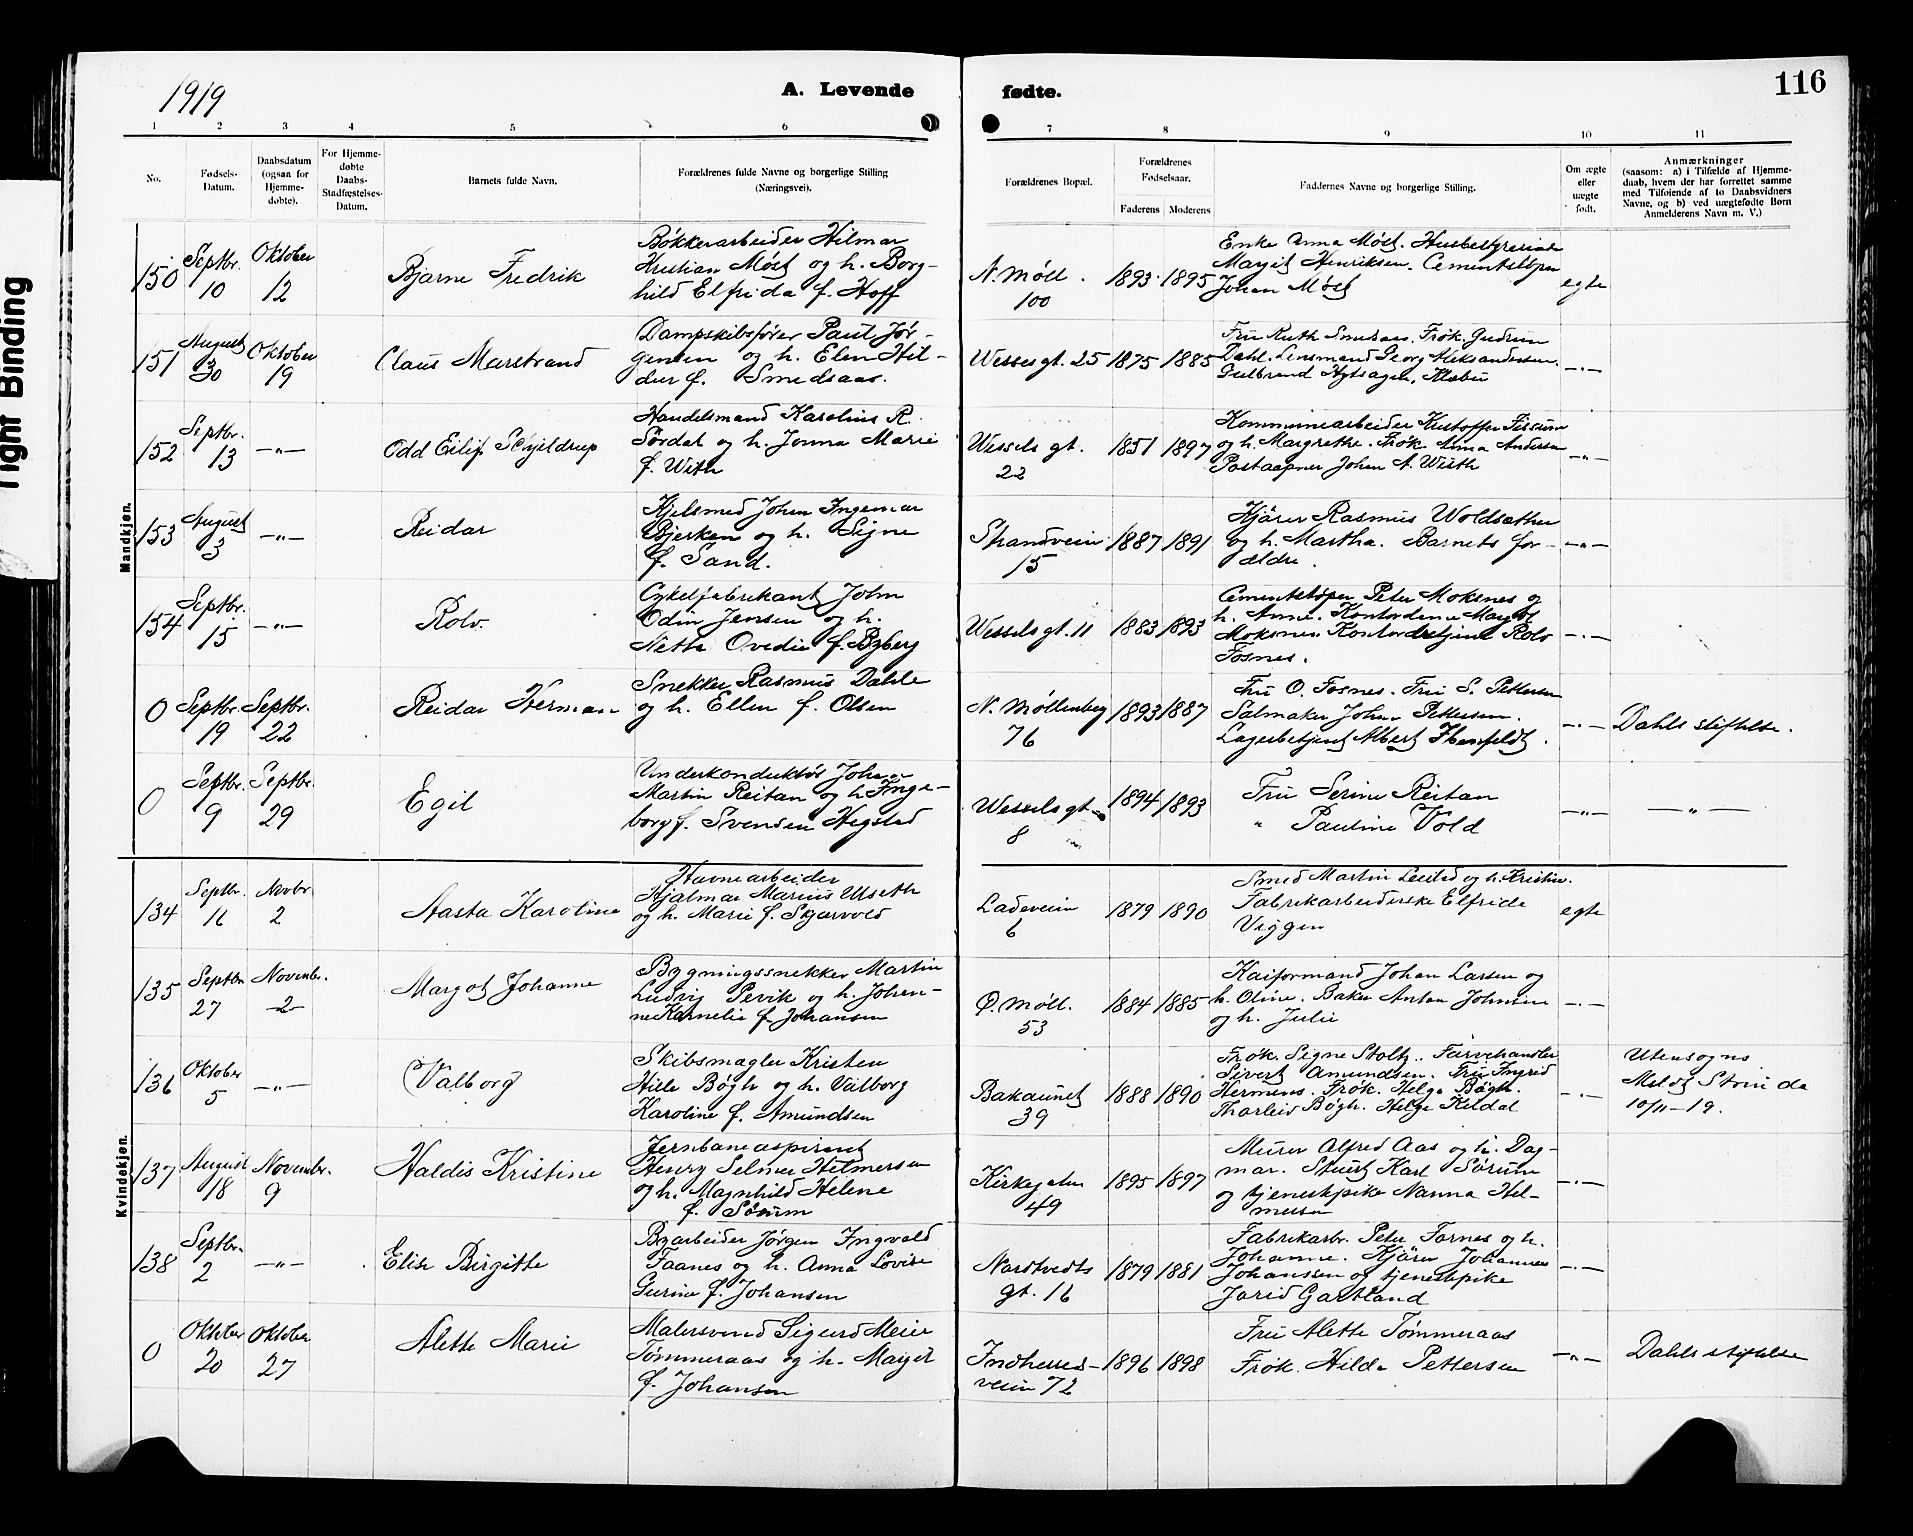 Tight Binding
1919
A. Levende fødte.
116
1 2 3 4 5 6 7 8 9 10 11
No.
Fødsels-
Datum.
Daabsdatum
(ogsaa for
Hjemme-
døbte).
For Hjemme-
døbte
Daabs-
Stadfæstelses-
Datum.
Barnets fulde Navn.
Forældrenes fulde Navne og borgerlige Stilling
(Næringsvei).
Forældrenes Bopæl.
Forældrenes
Fødselsaar.
Faderens Moderens
Faddernes Navne og borgerlige Stilling.
Om ægte
eller
uægte
født.
Anmærkninger
(saasom: a) i Tilfælde af Hjemme-
daab, hvem der har forrettet samme
med Tilføiende af to Daabsvidners
Navne, og b) ved uægtefødte Børn
Anmelderens Navn m. V.)
Mandkjøn.
150
Septbr.
10
Oktober
12
Bjarne Fredrik
Bøkkerarbeider Hilmar
Kristian Møst og h. Borg-
hild Elfrida f. Hoff
N. Møll.
100
1893 1895
Enke Anna Møst. Husbestyrerinde
Margit Henriksen. Cementstøper
Johan Møst
egte
151
August
30
Oktober
19
Claus Marstrand
Dampskibsfører Paul Jør-
gensen og h. Elen Hil-
dur f. Smedsaas.
Wesselsgt. 25
1875 1885
Fru Ruth Smedsaas. Frøk. Gudrun
Dahl. Lensmand Georg Aleksandersen.
Gulbrand, Klæbu
-"-
152
Septbr.
13
-"-
Odd Eilif Schjeldrup
Handelsmand Karolius R.
Sørdal og h. Jonna Marie
f. With
Wessels gt.
22
1851 1897
Kommunearbeider Kristoffer Fissum
og h. Margrethe. Frøk. Anna Andersen
Postaapner Johan A. With
-"-
153
August
3
-"-
Reidar
Kjelsmed Johan Ingemar
Bjerken og h. Signe
f. Sand.
Strandveien
15
1887 1891
Kjører Rasmus Woldsæther
og h. Martha. Barnets for-
ældre.
-"-
154
Septbr.
15
-"-
Rolv.
Cykelfabrikant John
Odin Jensen og h.
Netta Ovedie f. Byberg
Wessels gt. 11
1883 1893
Cementstøper Peter Moksnes og
h. Anna. Kontordame Margot
Moksnes. Kontorbetjent Rolv
Fosnes.
-"-
0
Septbr.
19
Septbr.
22
Reidar Herman
Snekker Rasmus Dahle
og h. Ellen f. Olsen
N. Møllenberg
76
1893 1887
Fru O. Fosnes. Fru S. Pettersen
Salmaker Johan Pettersen.
Lagerbetjent Albert.
-"-
Dahls stiftelse.
0
Septbr.
9
Septbr.
29
Egil
Underkonduktør Johan
Martin Reitan og h. Inge-
borg f. Svensen Hegstad
Wessels gt.
8
1894 1893
Fru Serine Reitan
" Pauline Vold
-"-
-"-
Kvindekjøn.
134
Septbr.
16
Novbr.
2
Aasta Karoline
Havnearbeider
Hjalmar Marius Ulseth
og h. Marie f. Skjærvold
Ladeveien
6
1879 1890
Smed Martin Leistad og h. Kristin.
Fabrikarbeiderske Elfrida
Viggen
egte
135
Septbr.
27
Novembr.
2
Margot Johanne
Bygningssnekker Martin
Ludvig Pevik og h. Johan-
ne Kornelia f. Johansen
Ø. Møll.
53
1884 1885
Kaiformand Johan Larsen og
h. Oline. Baker Anton Johnsen
og h. Julie
-"-
136
Oktober
5
-"-
Valborg
Skibsmægler Kristen
Hille Bøgh og h. Valborg
Karoline f. Amundsen
Bakaunet
39
1888 1890
Frøk. Signe Stoltz. Farvehandler
Sivert Amundsen. Fru Ingrid
Hermens. Frøk. Helga Bøgh.
Thorleiv Bøgh. Helge Kildal
-"-
Utensogns
Meldt Strinda
10/11-19.
137
August
18
Novembr.
9
Haldis Kristine
Jernbaneaspirant
Henry Selmer Hilmersen
og h. Magnhild Helene
f. Sørum
Kirkegaten
49
1895 1897
Murer Alfred Aas og h. Dag-
mar. Stuert Karl Sørum
og tjenestpike Nanna Hel-
mersen
-"-
138
Septbr.
2
-"-
Elise Birgitte
Byarbeider Jørgen Ingvald
Faanes og h. Anna Lovise
Gurine f. Johansen
Nordtvedts
gt. 16
1879 1881
Fabrikarbr. Peter Fornes og h.
Johanne. Kjører Johannes
Johanssen og tjenestpike
Jorid Gartland
-"-
0
Oktober
20
Oktober
27
Alette Marie
Malersvend Sigurd Meier
Tømmeraas og h. Margit
f. Johansen
Indherreds-
veien 72
1896 1898
Fru Alette Tømmeraas
Frøk. Hilda Pettersen
-"-
Dahls stiftelse